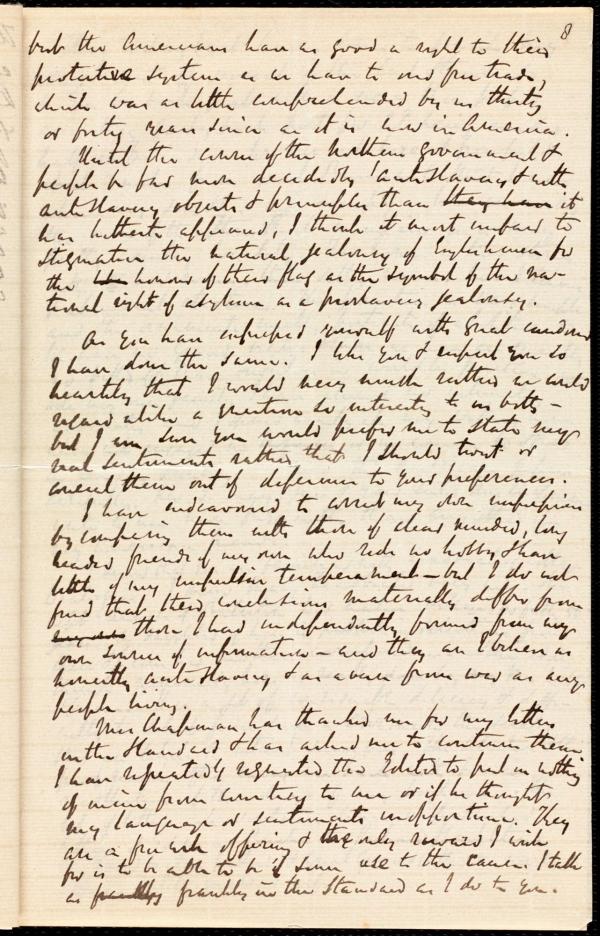 8
but the Americans have as good a right to their
protective system as we have to our free trade,
which was as little comprehended by us thirty
or forty years since as it is now in America.
Until the course of the Northern government &
people be far more decidedly antislavery & with
antislavery objects & principles than they have it
has hitherto appeared, I think it most unfair to
stigmatize the natural jealousy of Englishmen for
the honour of their flag as the symbol of the na-
tional right of asylum as a proslavery jealousy.
As you have expressed yourself with great candour
I have done the same. I like you & respect you so
heartily that I would very much rather we could
regard alike a question so interesting to us both -
but I am sure you would prefer me to state my
real sentiments rather that I should twist or
conceal them out of deference to your preferences.
I have endeavoured to correct my own impressions
by comparing them with those of clear minded, long
headed friends of my own who ride no hobby & have
little of my impulsive temperament - but I do not
find that their conclusions materially differ from
those I had independently formed from my
own sources of information - and they are I believe as
honestly antislavery & as averse from war as any
people living.
Mrs Chapman has thanked me for my letters
in the Standard & has asked me to continue them.
I have repeatedly requested the Editor to put in nothing
of mine from courtesy to me or if he thought
my language or sentiments inopportune. They
are a free will offering & the only reward I wish
for is to be able to be of some use to the cause. I talk
as frankly in the Standard as I do to you.